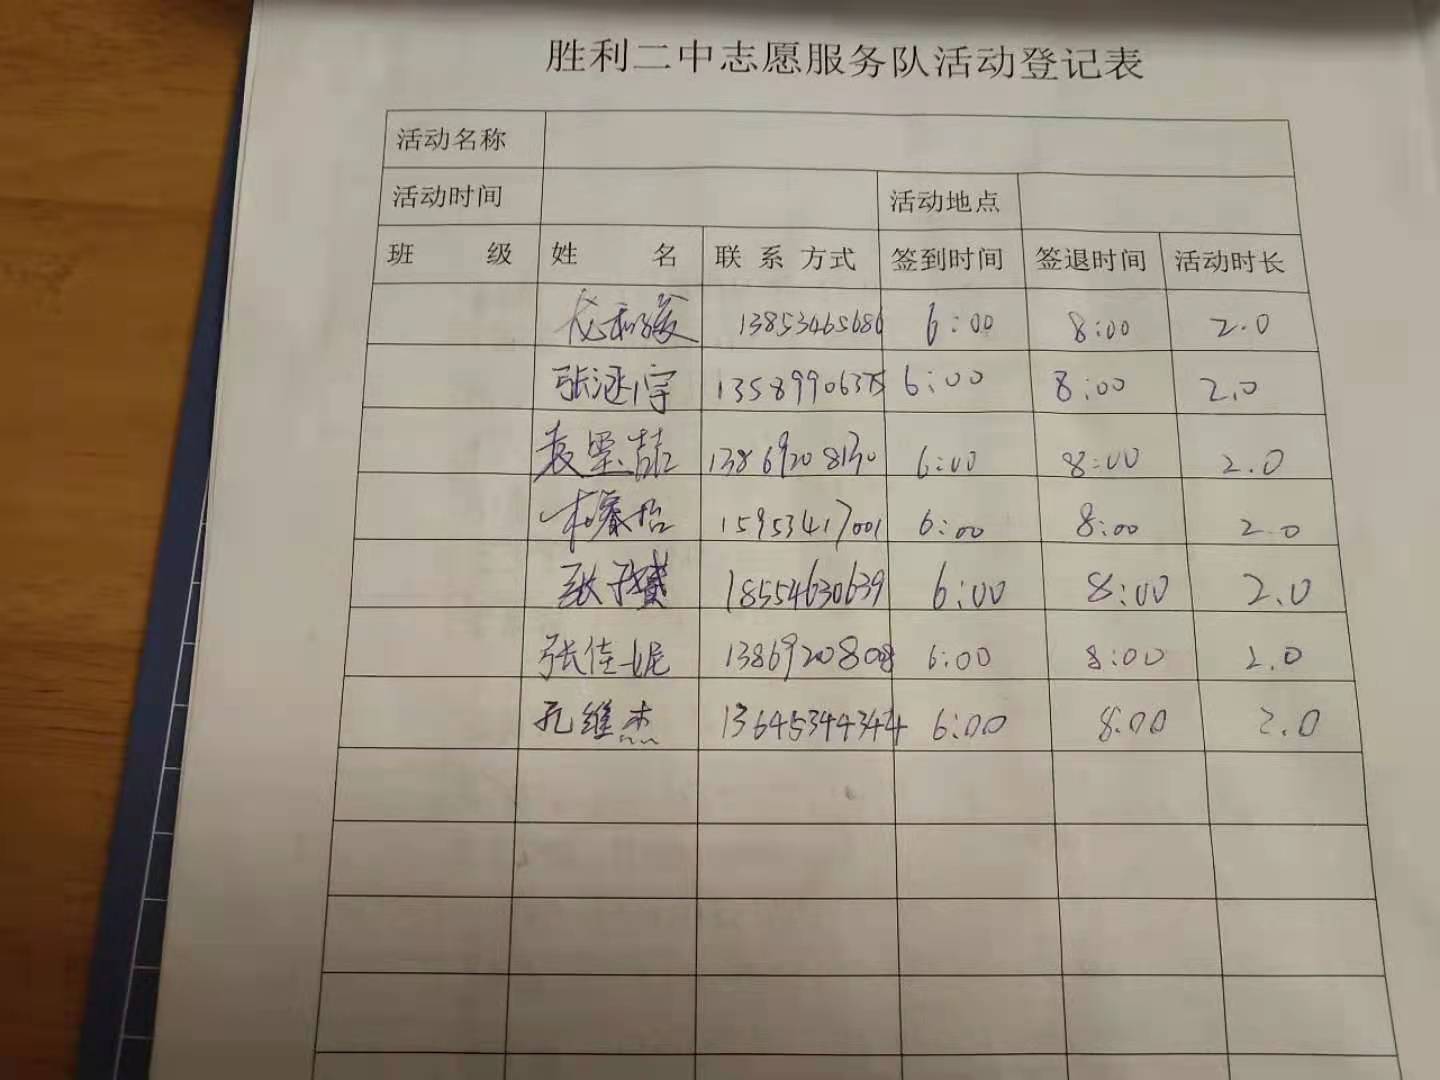 胜利二中志愿服务队活动登记表
活动名称
活动时间 活动地点
班 级 姓 名 联系方式 签到时间 签退时间 活动时长
13853465686 6:00 8:00 2.0
张涵宇 13589906375 6:00 8:00 2.0
袁墨喆 13869208130 6:00 8:00 2.0
15953417001 6:00 8:00 2.0
张子赟 18554630639 6:00 8:00 2.0
张佳妮 1386920808 6:00 8:00 2.0
孔维杰 13645344344 6:00 8:00 2.0